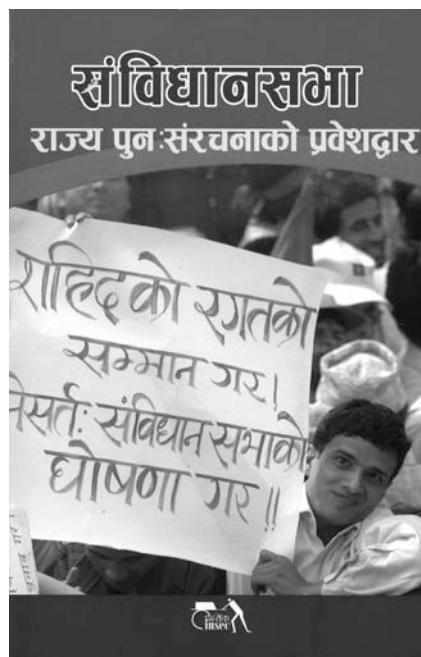 संविधानसभा
राज्य पुनःसंरचनाको प्रवेशद्वार
शहिदको रगतको
सम्मान गर!
नेसर्तः संविधान सभाको
घोषणा गर!!
insec